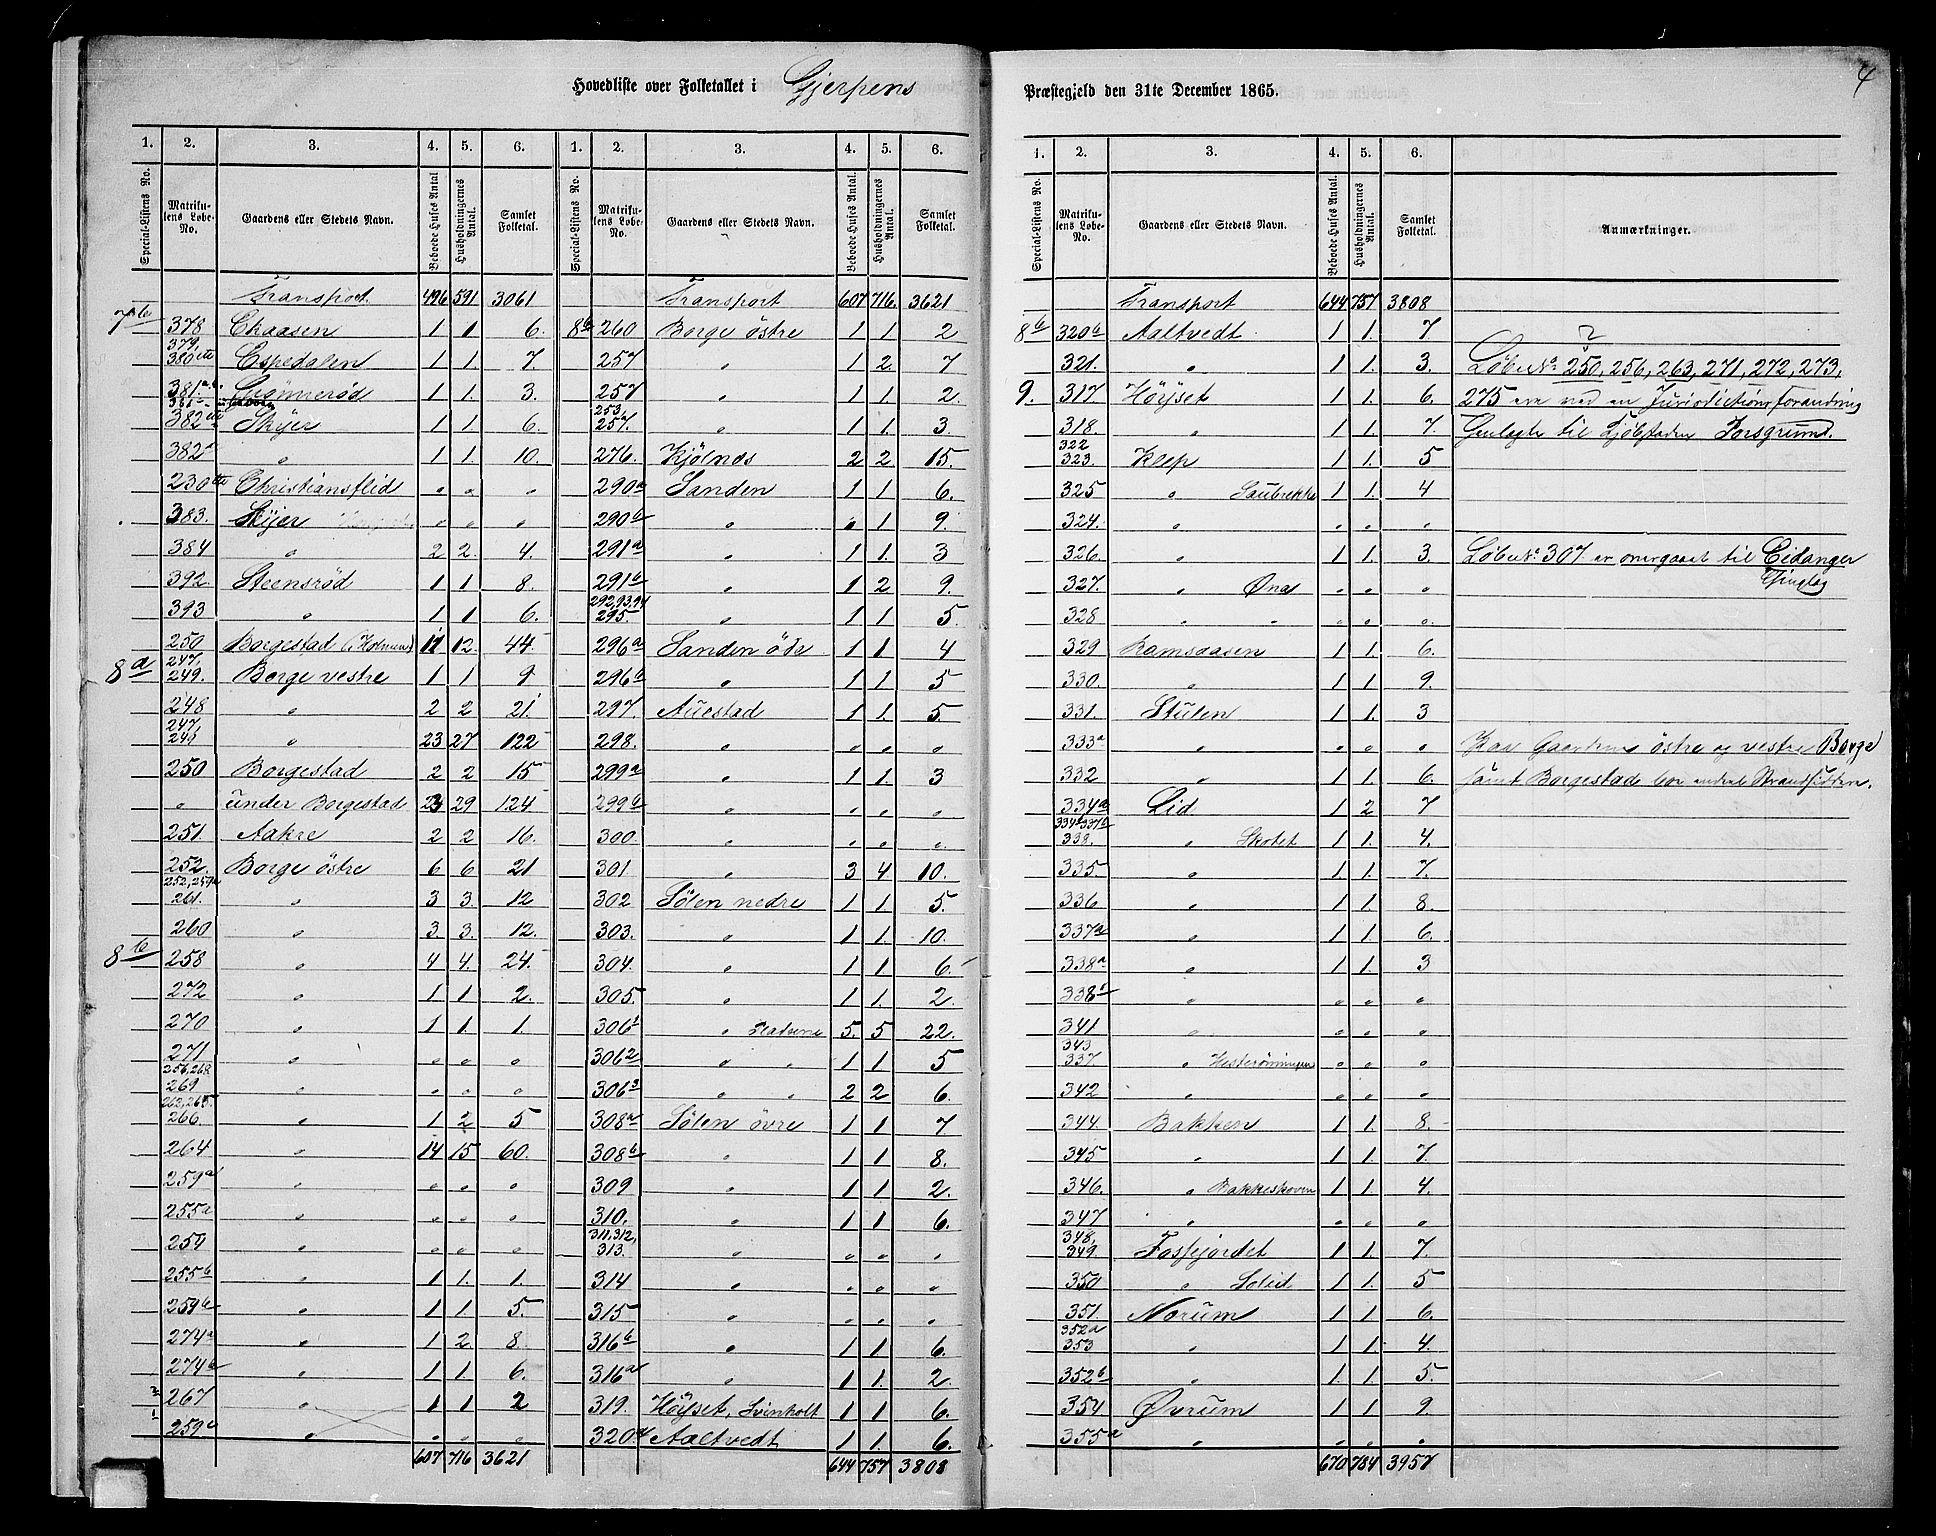 Hovedliste over Folketallet i Gjerpens
Præstegjeld den 31te December 1865.
4
1. 2. 3. 4. 5. 6. 1. 2. 3. 4. 5. 6.
Special-Listens No. Matrikulens Løbe-No. Gaardens eller Stedets Navn. Beboede Huses Antal Husholdningernes Antal. Samlet Folketal. Special-Listens No. Matrikulens Løbe-No. Gaardens eller Stedets Navn. Beboede Huses Antal. Husholdningernes Antal. Samlet Folketal.
Transport 496 591 3061
7b 378 Chaasen 1 1 6.
379, 380 Espedalen 1 1. 7.
381a Grönnerød 1 1. 3.
382 Skyer 1 1 6.
382a " 1 1. 10.
230 Christiansflid " " "
383. Skyer " " "
384 " 2 2. 4.
392. Steensrød 1 1 8.
393 " 1 1 6.
250 Borgestad (Holmen) 11 12. 44
8a 247, 249. Borge vestre 1 1 9
248 " 2 2 21.
247, 249 " 23 27 122
250 Borgestad 2 2 15
" under Borgestad 24 29 124
251. Aakre 2 2 16.
252. Borge östre 6 6 21
252, 259a 261. " 3 3. 12
260 " 3. 3. 12.
8b 258 " 4 4. 24.
272 " 1 1 2.
270 " 1 1. 1.
271 " " " "
256, 268 269 " " " "
262, 265 266. " 1 2 5
264 " 14 15 60.
259a " " " "
255a " " " "
254 " " " "
255b " 1 1. 1.
259b " 1 1. 5.
274a " 1 2. 8.
274b " 1 1. 6.
267 " 1 1 2
259c " " " "
607 716 3621
Transport 607 716. 3621
8b 260 Borge östre 1 1 2
257 " 1 2. 7
257 " 1 1 2.
253, 257. " 1 1. 3.
276. Kjölnes 2 2 15.
290a Sanden 1 1 6.
290b " " 1 9.
291a " 1 1. 3
291b " 1 2 9.
292, 93, 94 295. " 1 1 5.
296a Sanden öde 1 1 4
296b " 1 1. 5
297. Auestad 1 1. 5
298. " " " "
299a " 1 1. 3
299b " " " "
300. " " " "
301 " 3 4 10.
302 Sölen nedre 1 1 5.
303. " 1 1. 10.
304. " 1 1 6.
305. " 1 1. 2.
306¹ " 5. 5 22.
306² " " 1 1 5
306³ " " 2 2 6.
308a Sölen övre 1 1 7
308b " 1 1 8.
309 " 1 1. 2.
310. " 1 1 6.
311, 312, 313. " " " "
314 " " " "
315 " " " "
316b " 1 1 6.
316a " 1 1. 2.
319. Höyset, Svinholt 1 1 6.
320a Aaltvedt 1 1. 6.
644 757 3808
1. 2. 3. 4. 5. 6.
Special-Listens No. Matrikulens Løbe-No. Gaardens eller Stedets Navn. Beboede Huses Antal. Husholdningernes Antal. Samlet Folketal. Anmærkninger.
Transport 644 757 3808
8b 320b Aaltvedt 1 1. 7. ?
321. " 1 1. 3. Löbe No. 250, 256, 263, 271, 272, 273,
9. 317 Höyset 1 1. 6. 275 ere ved en Jurisdictionsforandring
318. " 1 1. 7. henlagte til Kjöbstaden Porsgrund.
322 323. Kleep 1 1. 5
325 " 1 1. 4
324. " " " "
326. " 1 1. 3. Löbe No. 307 er overgaaet til Eidanger
Thinglag
327. " " " "
328 " " " " "
329 Ramsaasen 1 1. 6.
330. " 1 1. 9.
331. Stulen 1 1. 3
333a " " " " Paa Gaardene östre og vestre Borge
332 " 1 1. 6. samt Borgestad bor endeel Strandsiddere.
334a Lid 1 2 7
334b 337b 338. " 1 1. 4.
335. " 1 1. 7.
336 " 1 1. 8.
337a " 1 1. 6.
338a " 1 1. 3
338b " " " "
341 " " " "
343 337. " " " "
342 " " " "
344. Bakken 1 1. 8.
345 " 1 1. 7.
346. " Bakkeskoven 1 1. 4.
347 " " " "
348, 349. Fosfjordet 1 1. 7.
350 " 1 1. 5
351. Norum 1 1 6.
352a 353 " 1 1. 4.
352b " 1 1. 5.
354 Øvrum 1 1 9.
355a " " " "
670 784 3957